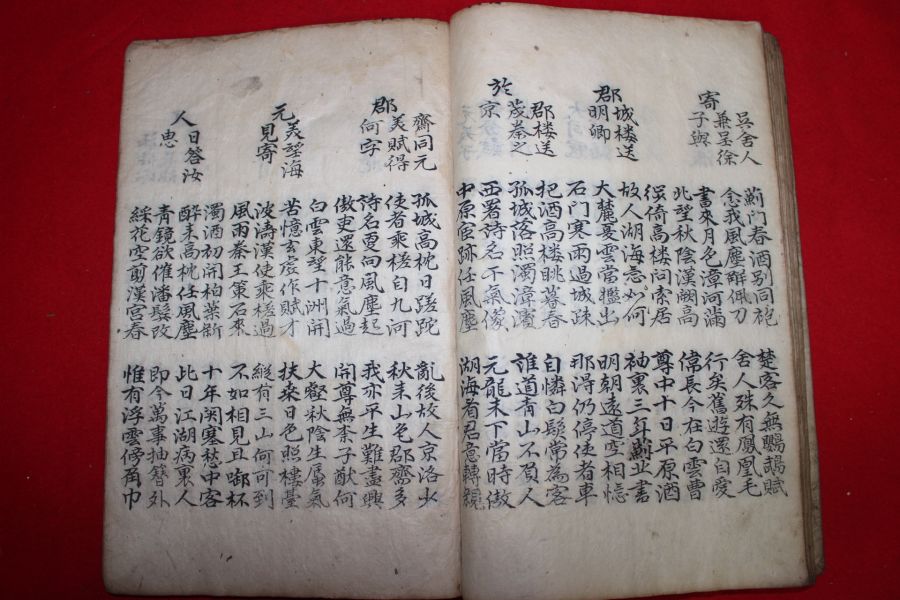 吴舍人
兼呈徐
寄子與
薊门春酒别同袍 楚客久無鸚鵡賦
念我風塵觧佩刀 舍人殊有鳳凰毛
書來月色漳河滿 行矣舊遊還自愛
北望秋陰漢闕高 偉長今在白雲曹
城楼送
郡明卿
徙倚高楼问索居 尊中十日平原酒
故人湖海意如何 袖裏三年薊北書
大麓憂雲當檻出 明朝遠道空相憶
石门寒雨過城踈 那浔仍停使者車
郡楼送
茂秦之
於京
把酒高楼眺暮春 自憐白髮常為客
孤城落照濁漳濱 誰道青山不負人
西署詩名千氣像 元龍未下當時傲
中原宦跡任風塵 湖海看君意轉親
齋同元
美賦得
郡何字
孤城高枕日蹉跎 亂後故人京洛少
使者乘槎自九河 秋来山色郡齋多
詩名向風塵起 我亦平生難盡興
傲吏還能意氣過 開尊無柰子猷何
美望海
元見寄
白雲東望十洲開 大壑秋陰生蜃氣
苦憶玄虚作賦才 扶桒日色照樓臺
波濤漢使乘槎過 縱有三山何可到
風雨秦王策石来 不如相見且啣杯
日答汝
人思
濁酒初開柏葉新 十年関塞愁中客
醉来高枕任風塵 此日江湖病裏人
青鏡欲催潘鬂改 即今萬事抽簪外
綵花空剪漢宫春 惟有浮雲傍角巾